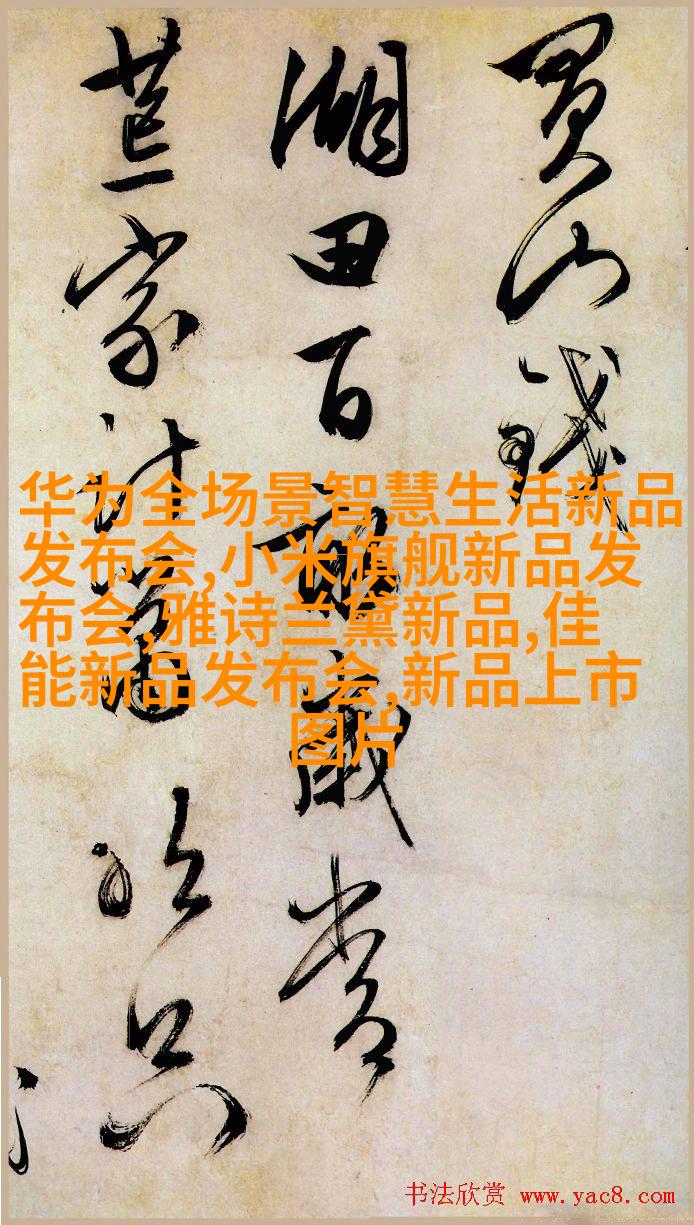 買山錢
湖田百畝歲常
荒家計
只
华为全场景智慧生活新品
发布会,小米旗舰新品发
布会,雅诗兰黛新品,佳
能新品发布会,新品上市
图片
书法欣赏 www.yac8.com